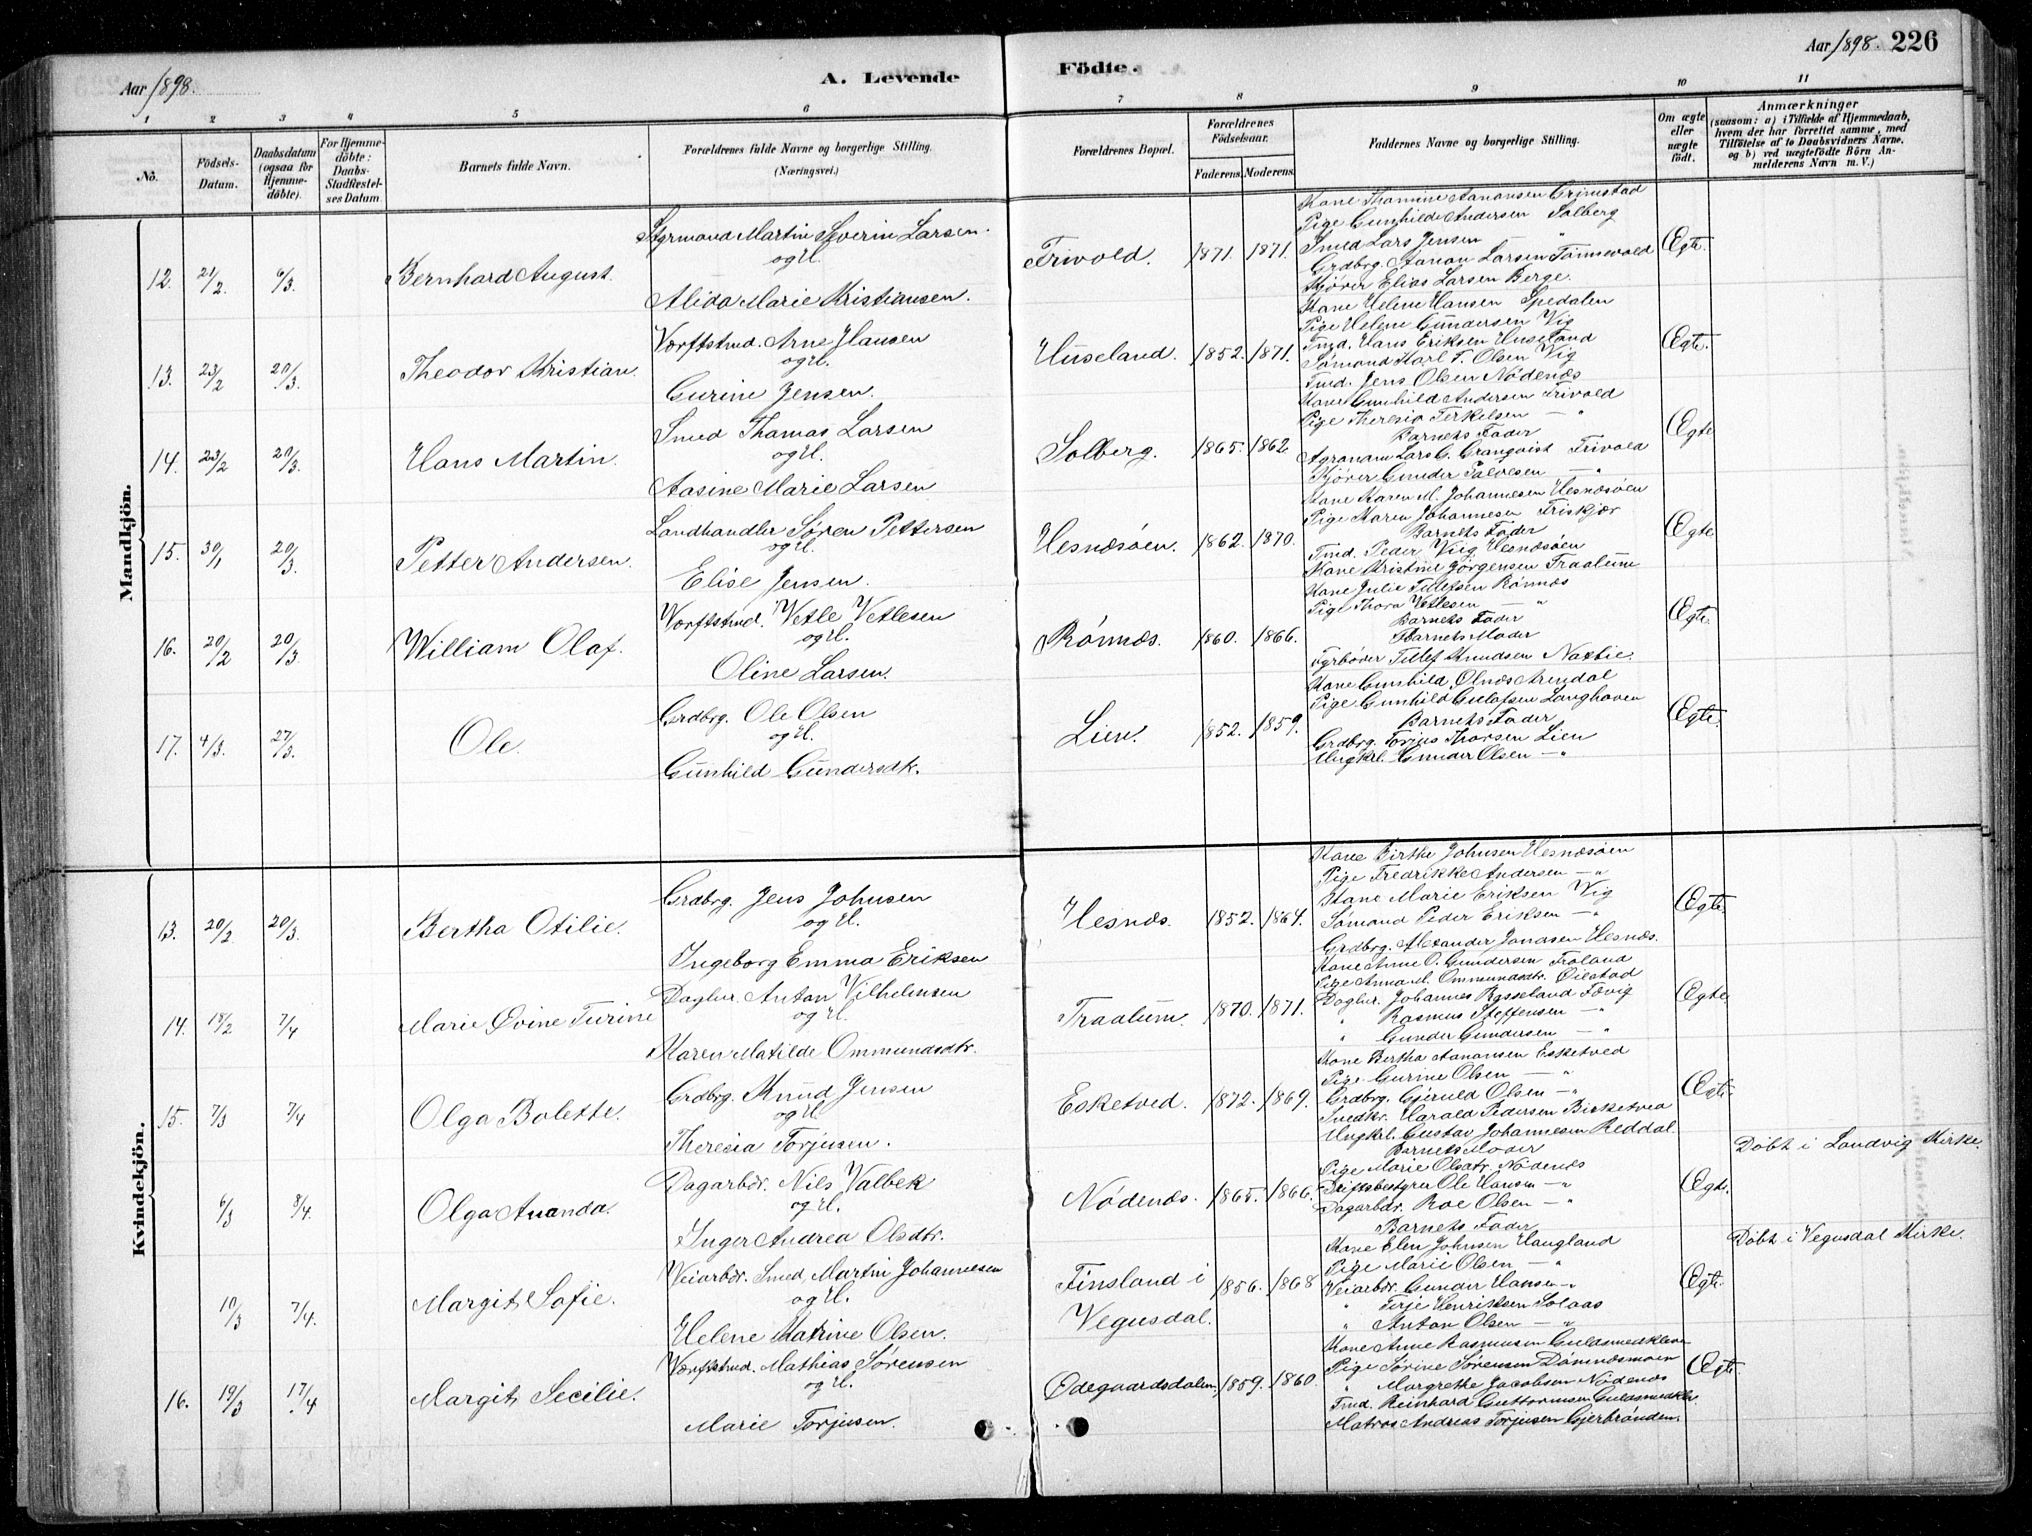 Aar 1898.
A. Levende
Födte.
Aar 1898. 226
1 2 3 4 5 6 7 8 9 10 11
No.
Födsels-Datum.
Daabsdatum (ogsaa for Hjemme-döbte).
For Hjemme-döbte: Daabs-Stadfæstel-ses Datum
Barnets fulde Navn.
Forældrenes fulde Navne og borgerlige Stilling.
(Næringsvei.)
Forældrenes Bopæl.
Forældrenes Födselsaar.
Faderens. Moderens.
Faddernes Navne og borgerlige Stilling.
Om ægte eller uægte födt.
Anmærkninger
(saasom: a) i Tilfælde af Hjemmedaab,
hvem der har forrettet samme, med
Tilföielse af to Daabsvidners Navne,
og b) ved uægtefödte Börn An-
melderens Navn m. V.)
Mandkjön.
12. 21/2 6/3 Bernhard August.
Styrmand Martin Severin Larsen.
og H.
Alida Marie Kristiansen.
Frivold. 1871. 1871.
Kone Thomine Aanonsen Grimstad
Pige Gunhilde Andersen Solberg
Smed Lars Jensen — "
Grdbrg. Aanon Larsen Tönnevold
Kjörer Elias Larsen Berge.
Egte.
13. 23/2 20/3. Theodor Kristian.
Værftstmd. Arne Hansen
og H.
Gurine Jensen.
Huseland. 1852. 1871.
Kone Helene Hansen Spedalen
Pige Helene Gundersen Vig
Tmd. Hans Eriksen Huseland
Sømand Karl T. Olsen Vig
Tmd. Jens Olsen Nödenæs
Egte.
14. 23/2 20/3. Hans Martin.
Smed Thomas Larsen
og H.
Aasine Marie Larsen
Solberg. 1865. 1862
Kone Gunhild Andersen Frivold
Pige Theresia Terkelsen — "
Barnets Fader
Agronom Lars G. Granqvist Frivold
Kjörer Gunder Salvesen — "
Egte
15. 30/1 20/3 Petter Andersen.
Landhandler Søren Pettersen
og H.
Elise Jensen.
Hesnæsöen. 1862. 1870.
Kone Karen M. Johannesen Hesnæsöen
Pige Karen Johannesen Friskjær
Barnets Fader
Tmd. Peder Viig Hesnæsöen
Kone Kristine Jörgensen Traalum
Egte
16. 20/2 20/3 William Olaf.
Værftstmd. Vetle Vetlesen
og H.
Oline Larsen.
Rönnæs. 1860. 1866.
Kone Julie Tellefsen Rönnæs
Pige Thora Vetlesen — "
Barnets Fader
Barnets Moder
Fyrböter Tellef Knudsen Naxtie.
Egte.
17. 4/3. 27/3. Ole.
Grdbrg. Ole Olsen
og H.
Gunhild Gundersdtr.
Lien. 1852. 1859.
Kone Gunhild Olnæs Arendal
Pige Gunhild Gulafsen Langhaven
Barnets Fader
Grdbrg. Torjus Thorsen Lien
Ungkrl. Gunder Olsen — "
Egte.
Kvindekjön.
13. 20/2 20/3. Bertha Otilie.
Grdbrg. Jens Johnsen
og H.
Ingeborg Emma Eriksen
Hesnæs. 1852. 1864.
Kone Birthe Johnsen Hesnæsöen
Pige Fredrikke Andersen — "
Kone Marie Eriksen Vig
Sømand Peder Eriksen — "
Grdbrg. Alexander Jonassen Hesnæs.
Egte.
14. 18/2 7/4 Marie Övine Turine
Daglnr. Anton Vilhelmsen
og H.
Karen Matilde Ommundsdtr.
Traalum. 1870. 1871.
Kone Anne O. Gundersen Froland
Pige Anna M. Ommundsdtr. Öiestad
Daglnr. Johannes Rosseland Fevig
" Rasmus Steffensen — "
" Gunder Gundersen — "
Egte.
15. 7/3 7/4 Olga Bolette.
Grdbrg. Knud Jensen
og H.
Theresia Torjusen.
Esketved. 1872. 1869.
Kone Bertha Aanonsen Esketved
Pige Gurine Olsen — "
Grdbrg. Gjeruld Olsen — "
Smedkr. Harald Pedersen Birketved
Ungkrl. Gustav Johannesen Reddal.
Egte.
6/3 8/4. Olga Amanda.
Dagarbdr. Nils Valbek
og H.
Inger Andrea Olsdtr.
Nödenæs. 1865. 1866.
Barnets Moder
Pige Marie Olsdtr. Nödenæs
Driftsbestyrer Ole Hansen — "
Dagarbdr. Roe Olsen — "
Barnets Fader
Egte.
Döbt i Landvig Kirke.
10/3 7/4. Margit Sofie.
Veiarbdr. Smed Martin Johannesen
og H.
Helene Katrine Olsen.
Finsland i
Vegusdal. 1856. 1868
Kone Elen Johnsen Haugland
Pige Marie Olsen — "
Veiarbdr. Gunder Hansen — "
" Terje Henriksen Solaas
" Anton Olsen — "
Egte.
Döbt i Vegusdal Kirke.
16. 19/3 17/4 Margit Secilie.
Værftstmd. Mathias Sörensen
og H.
Marie Torjusen.
Ödegaardsdalen. 1859. 1860.
Kone Anne Rasmusen Guldsmedkleven
Pige Sörine Sörensen Dömnæsmoen
" Margrethe Jacobsen Nödenæs
Tmd. Reinhard Guttormsen Guldsmedklev.
Matros Andreas Torjusen Gjerbrönden.
Egte.